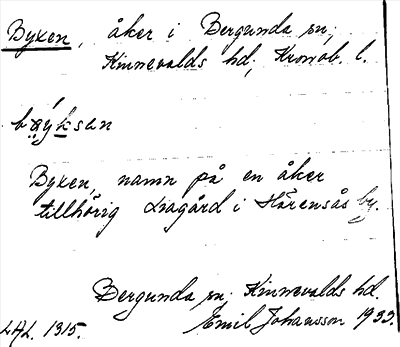 Byken, åker i Bergunda sn,
Kinnevalds hd, Kronob. l.
Byken, namn på en åker
tillhörig Liagård i Härensås by.
Bergunda sn, Kinnevalds hd.
LAL. 1315. Emil Johansson 1933.